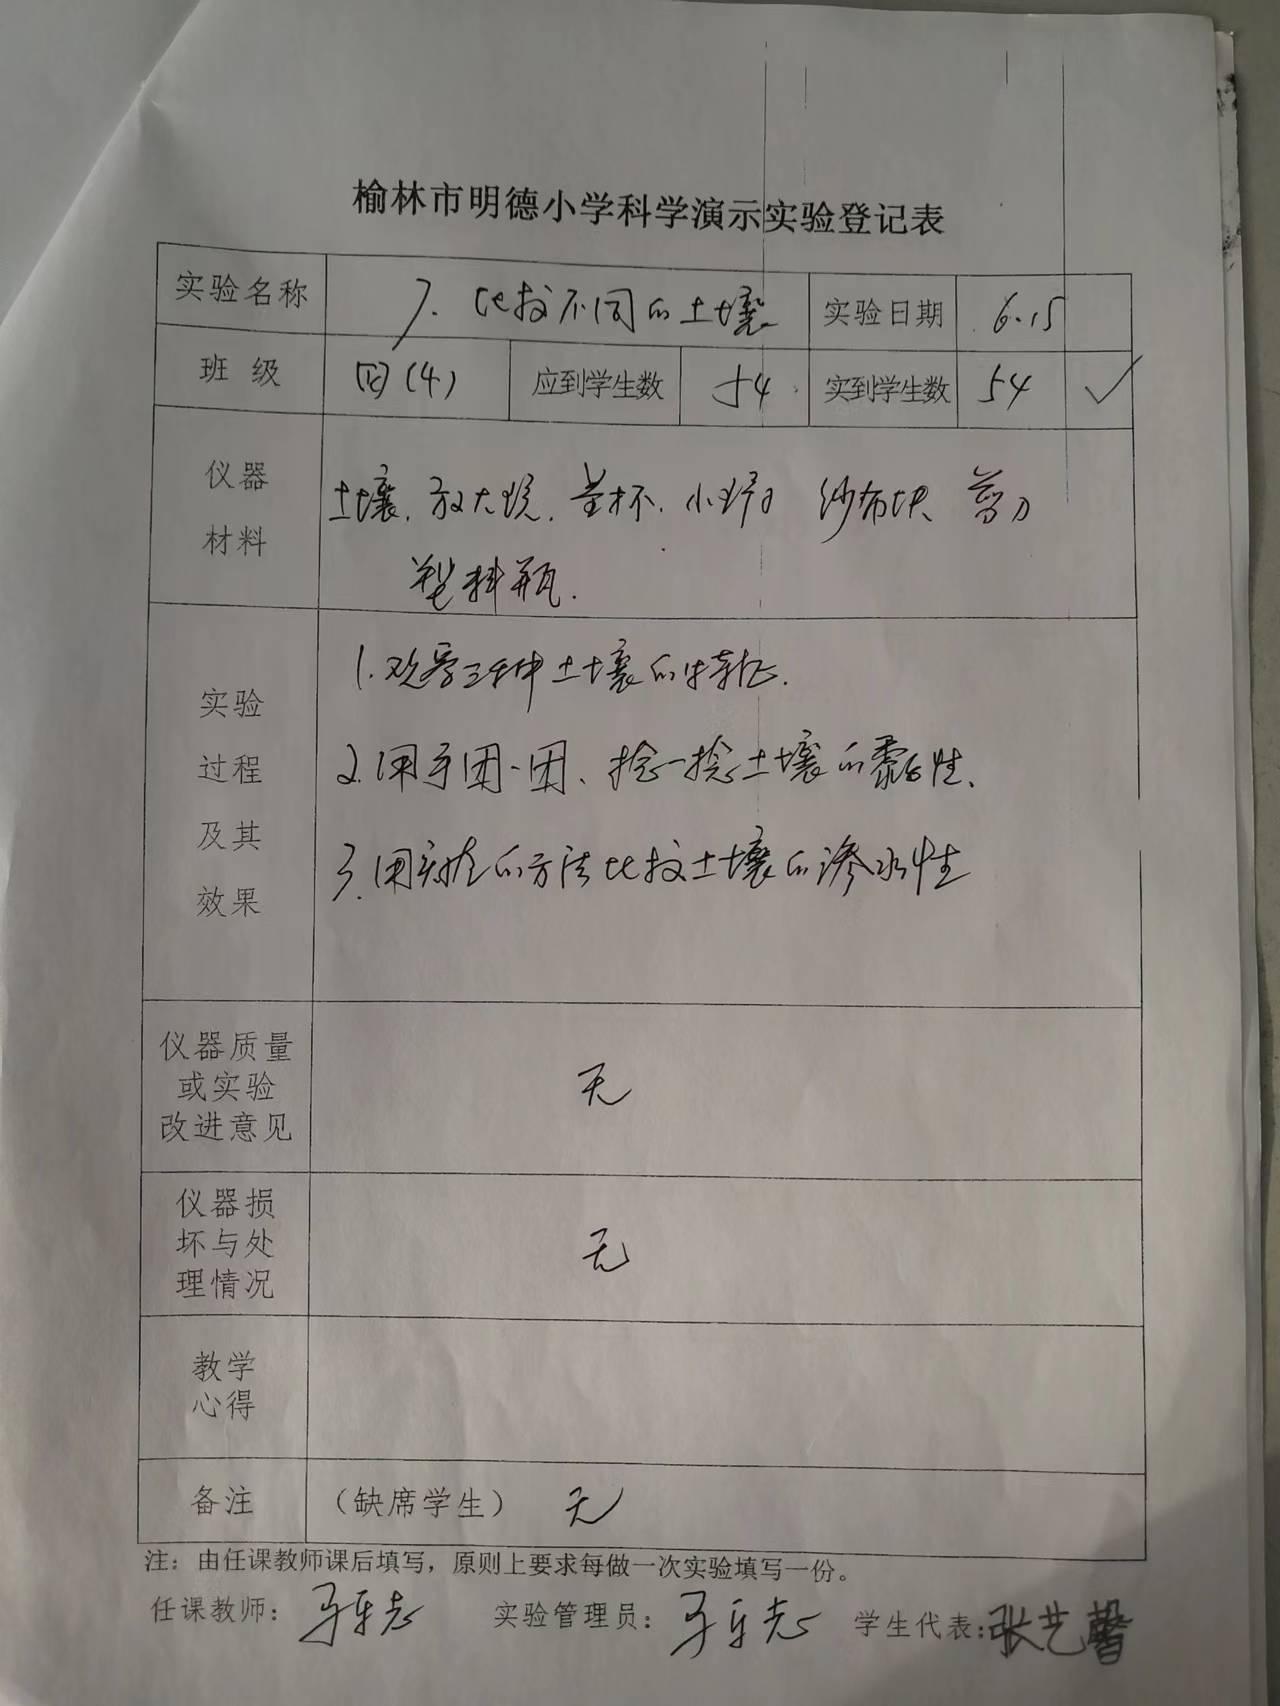 榆林市明德小学科学演示实验登记表
实验名称 7. 比较不同的土壤 实验日期 6.15
班 级 四(4) 应到学生数 54 实到学生数 54 ✓
仪器 材料 土壤. 放大镜. 量杯. 纱布块 剪刀
塑料瓶.
实验 过程 及其 效果
1.观察三种土壤的特征.
2.用手团一团、捻一捻土壤的黏性.
3.用实验的方法比较土壤的渗水性
仪器质量 或实验 改进意见 无
仪器损 坏与处 理情况 无
教学 心得
备注 (缺席学生) 无
注：由任课教师课后填写，原则上要求每做一次实验填写一份。
任课教师： 实验管理员： 学生代表：张艺馨